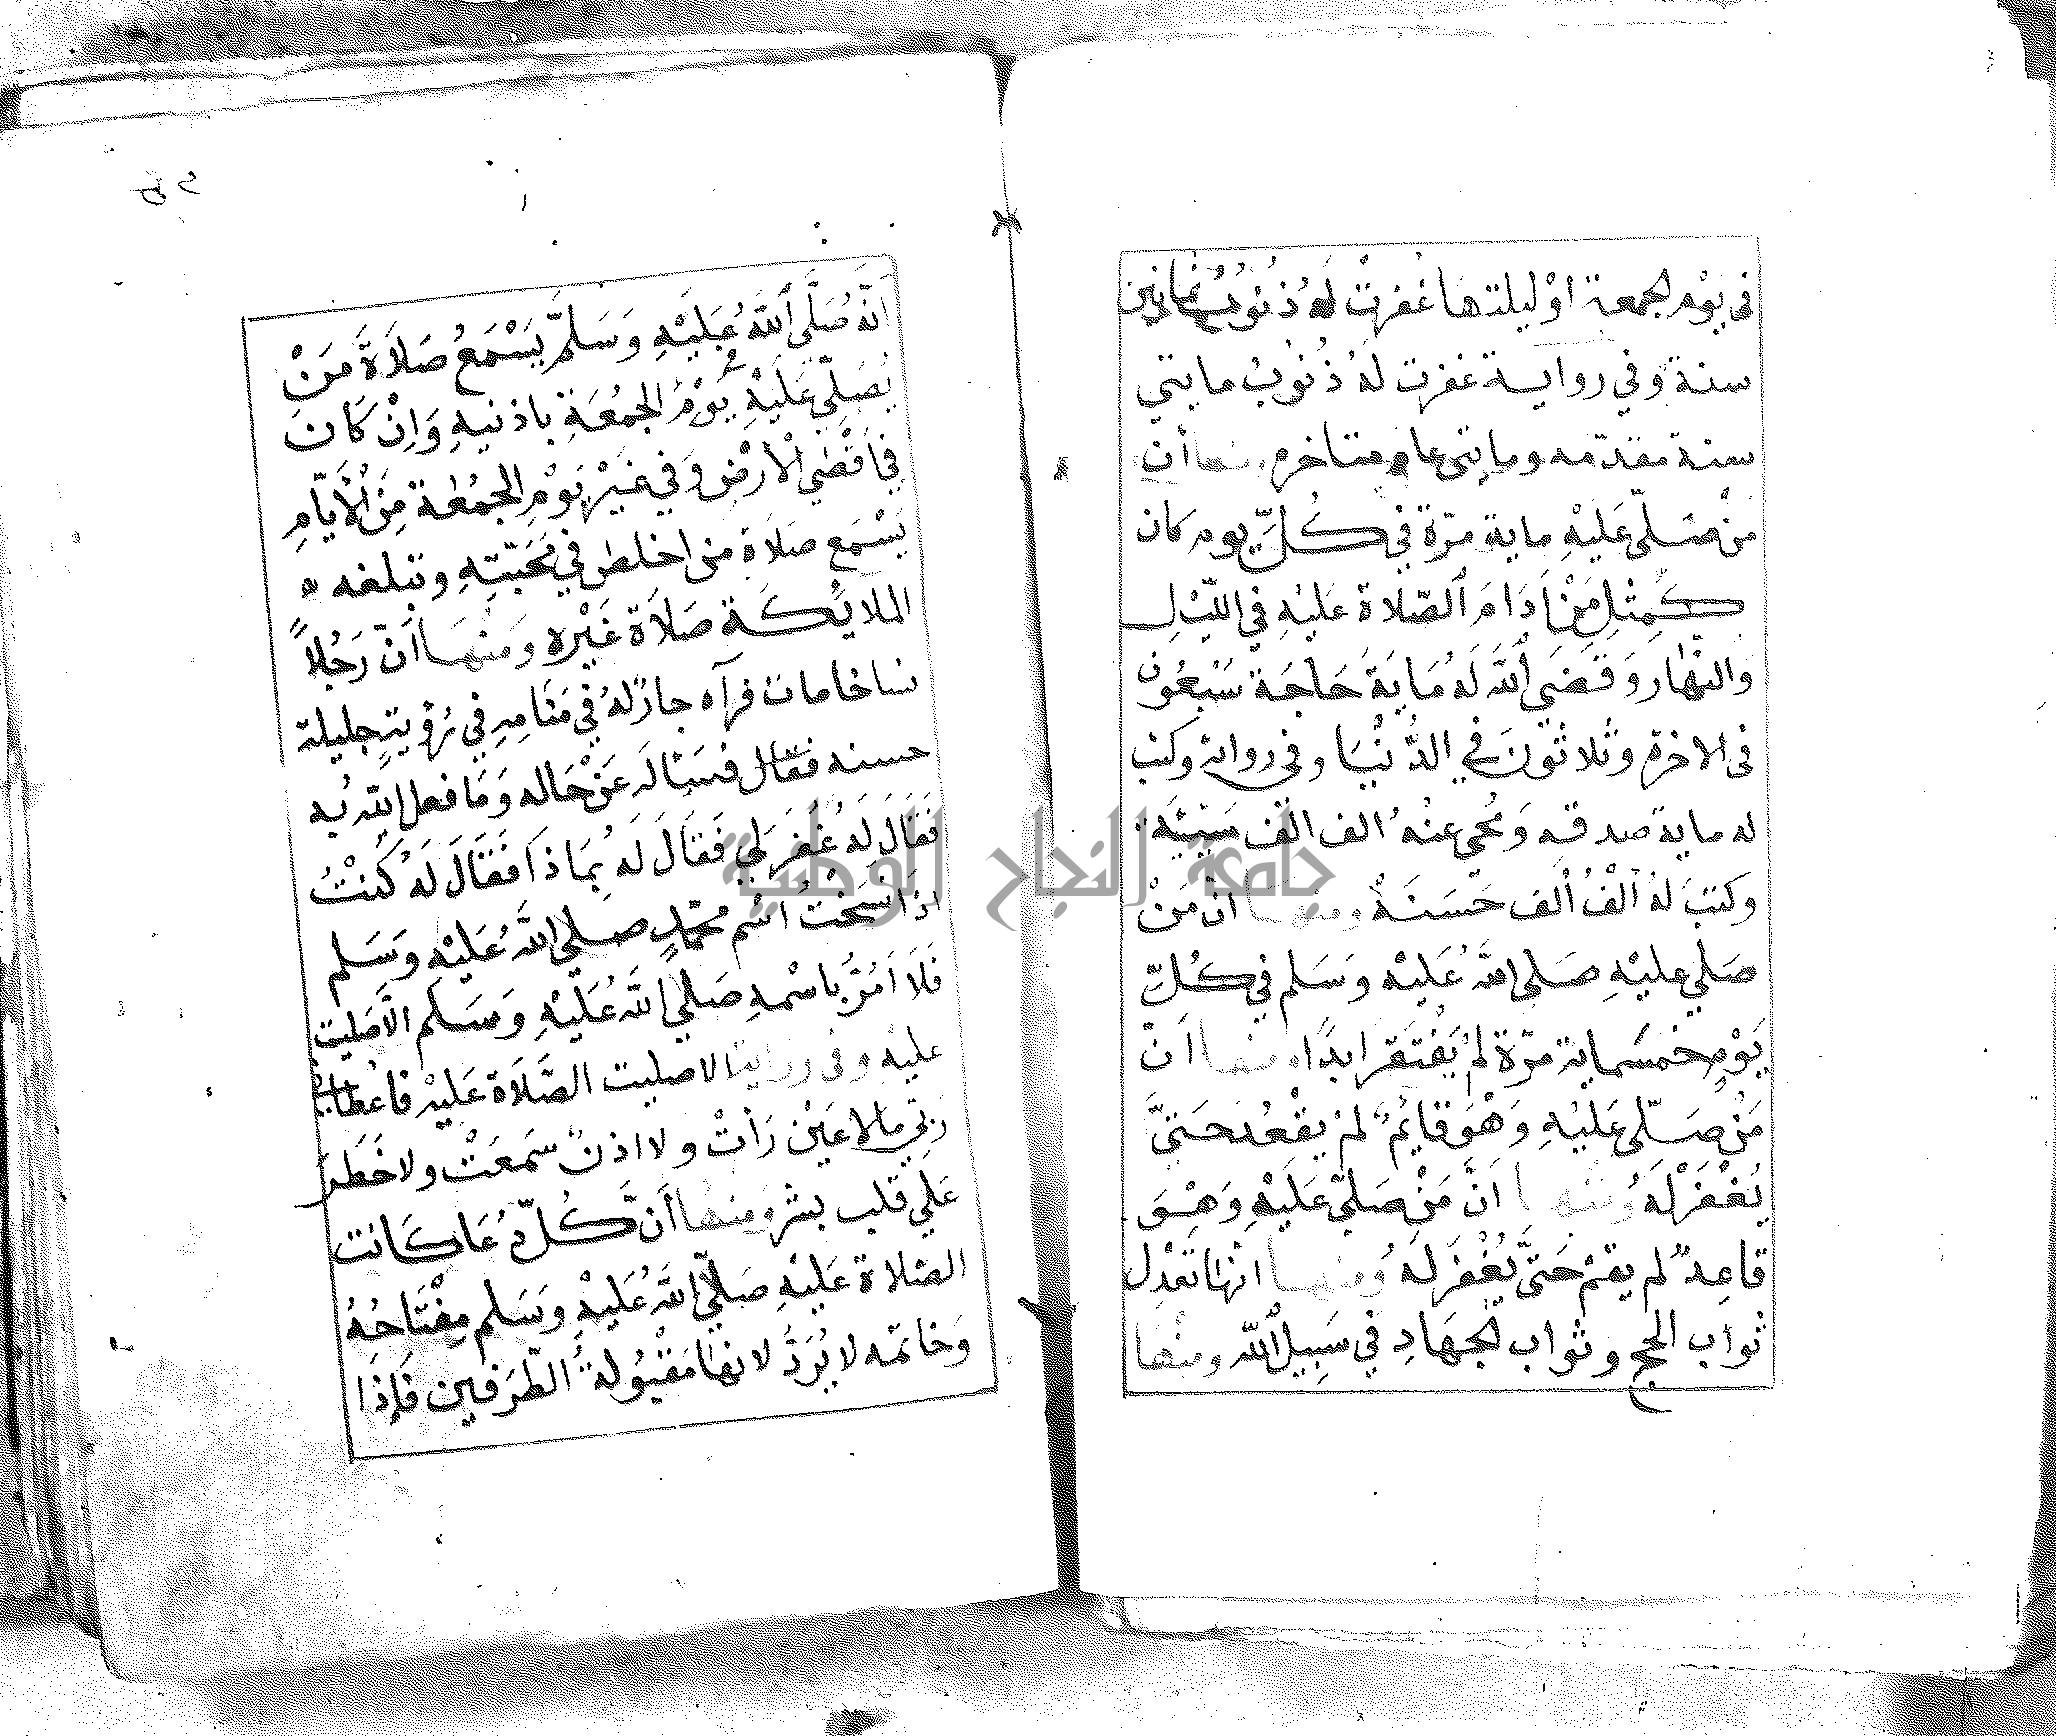 في يوم الجمعة او ليلتها غفرت له ذنوب ثمانين
سنة وفي رواية غفرت له ذُنُوبُ مايتي
سنة مقدّمه ومايتي عام متاخرة ومنها أن
منْ صَلّى عَليْهِ ماية مرّة في كُلّ يوم كان
كَمِثْلِ مَنْ اَدَامَ الصّلاة عَليْهِ في اللّيْل
والنّهار وَقَضَى اللّهُ لَهُ مَايَةَ حَاجَة سَبْعُون
في الاخرة وثلاثُونَ في الدُّنْيَا وفي رواية وكتب
له ماية صدقه وَمُحي عنْهُ الف الف سَيّئَه
وكتبَ لهُ اَلْفُ اَلْف حَسَنَة ومنها انّ مَنْ
صَلي عليْهِ صَلى اللهُ عَليْه وَسَلم في كُلّ
يَوْمٍ خمسماية مرّة لمْ يَفْتَقر ابدًا ومنها انّ
مَنْ صَلّى عَليْهِ وَهْوَ قايمٌ لمْ يقْعُد حَتيّ
يُغْفَرْ لَهُ ومنها انَّ مَنْ صَلّي عَليْهِ وَهْوَ
قاعِدٌ لم يقمْ حَتيَّ يُغْفَر لَهُ ومنها انها تعْدِل
ثواب الحج وثواب الجهادِ في سَبِيل اللّه ومنْها
اَنّهُ صَلَّى اَللّهُ عَلَيْهِ وَسَلمَّ يَسْمَعُ صَلاَةَ مَنْ
يُصَلّي عَلَيْهِ يَوْمَ الجمُعَةِ باذنيهِ وَاِنْ كَانَ
في اَقْصَي الْارْضِ وَفي غَيْرِ يَوْمِ الجمُعَة مِنَ الْأَيّامِ
يَسْمَع صَلاَة من اخلص في مَحَبّتِهِ وتبلغه
الملايكَة صَلاَة غَيْره وَمنْهَا اَنّ رَجُلاً
نساخا مات فرآه جارٌ لهُ في مَنَامِهِ في رُؤيةٍ جليلة
حسنه فقال فسَئالَه عَنْ حَاله وَمَا فعل اللّه به
فَقَالَ لهُ غُفرَ لي فَقَالَ لَه بمَاذَا فَقَالَ لَهُ كُنْتُ
اذَا نسَخْتُ اسْم محمّدٍ صلي اللّهُ عَليْهِ وَسَلم
فَلَا اَمُرُّ باسْمهِ صَلي اللّهُ عَليْهِ وَسَلم الّا صَليت
عليه وفي رواية الا صليت الصَّلَاة عَليْهِ فاعْطاني
رَبّي مالا عَيْن رَاتْ ولا اذنٌ سَمعَتْ ولا خَطَرَ
عَلي قلب بشر ومنها اَنَّ كُلّ دُعَا كَانت
الصّلاة عَليْهِ صَلّي اللّهُ عَليْهِ وَسَلم مِفْتَاحُهُ
وَخاتمّه لا يُرَدُّ لانها مَقْبُولة الطّرَفين فَإذَا
جامعة النجاح الوطنية